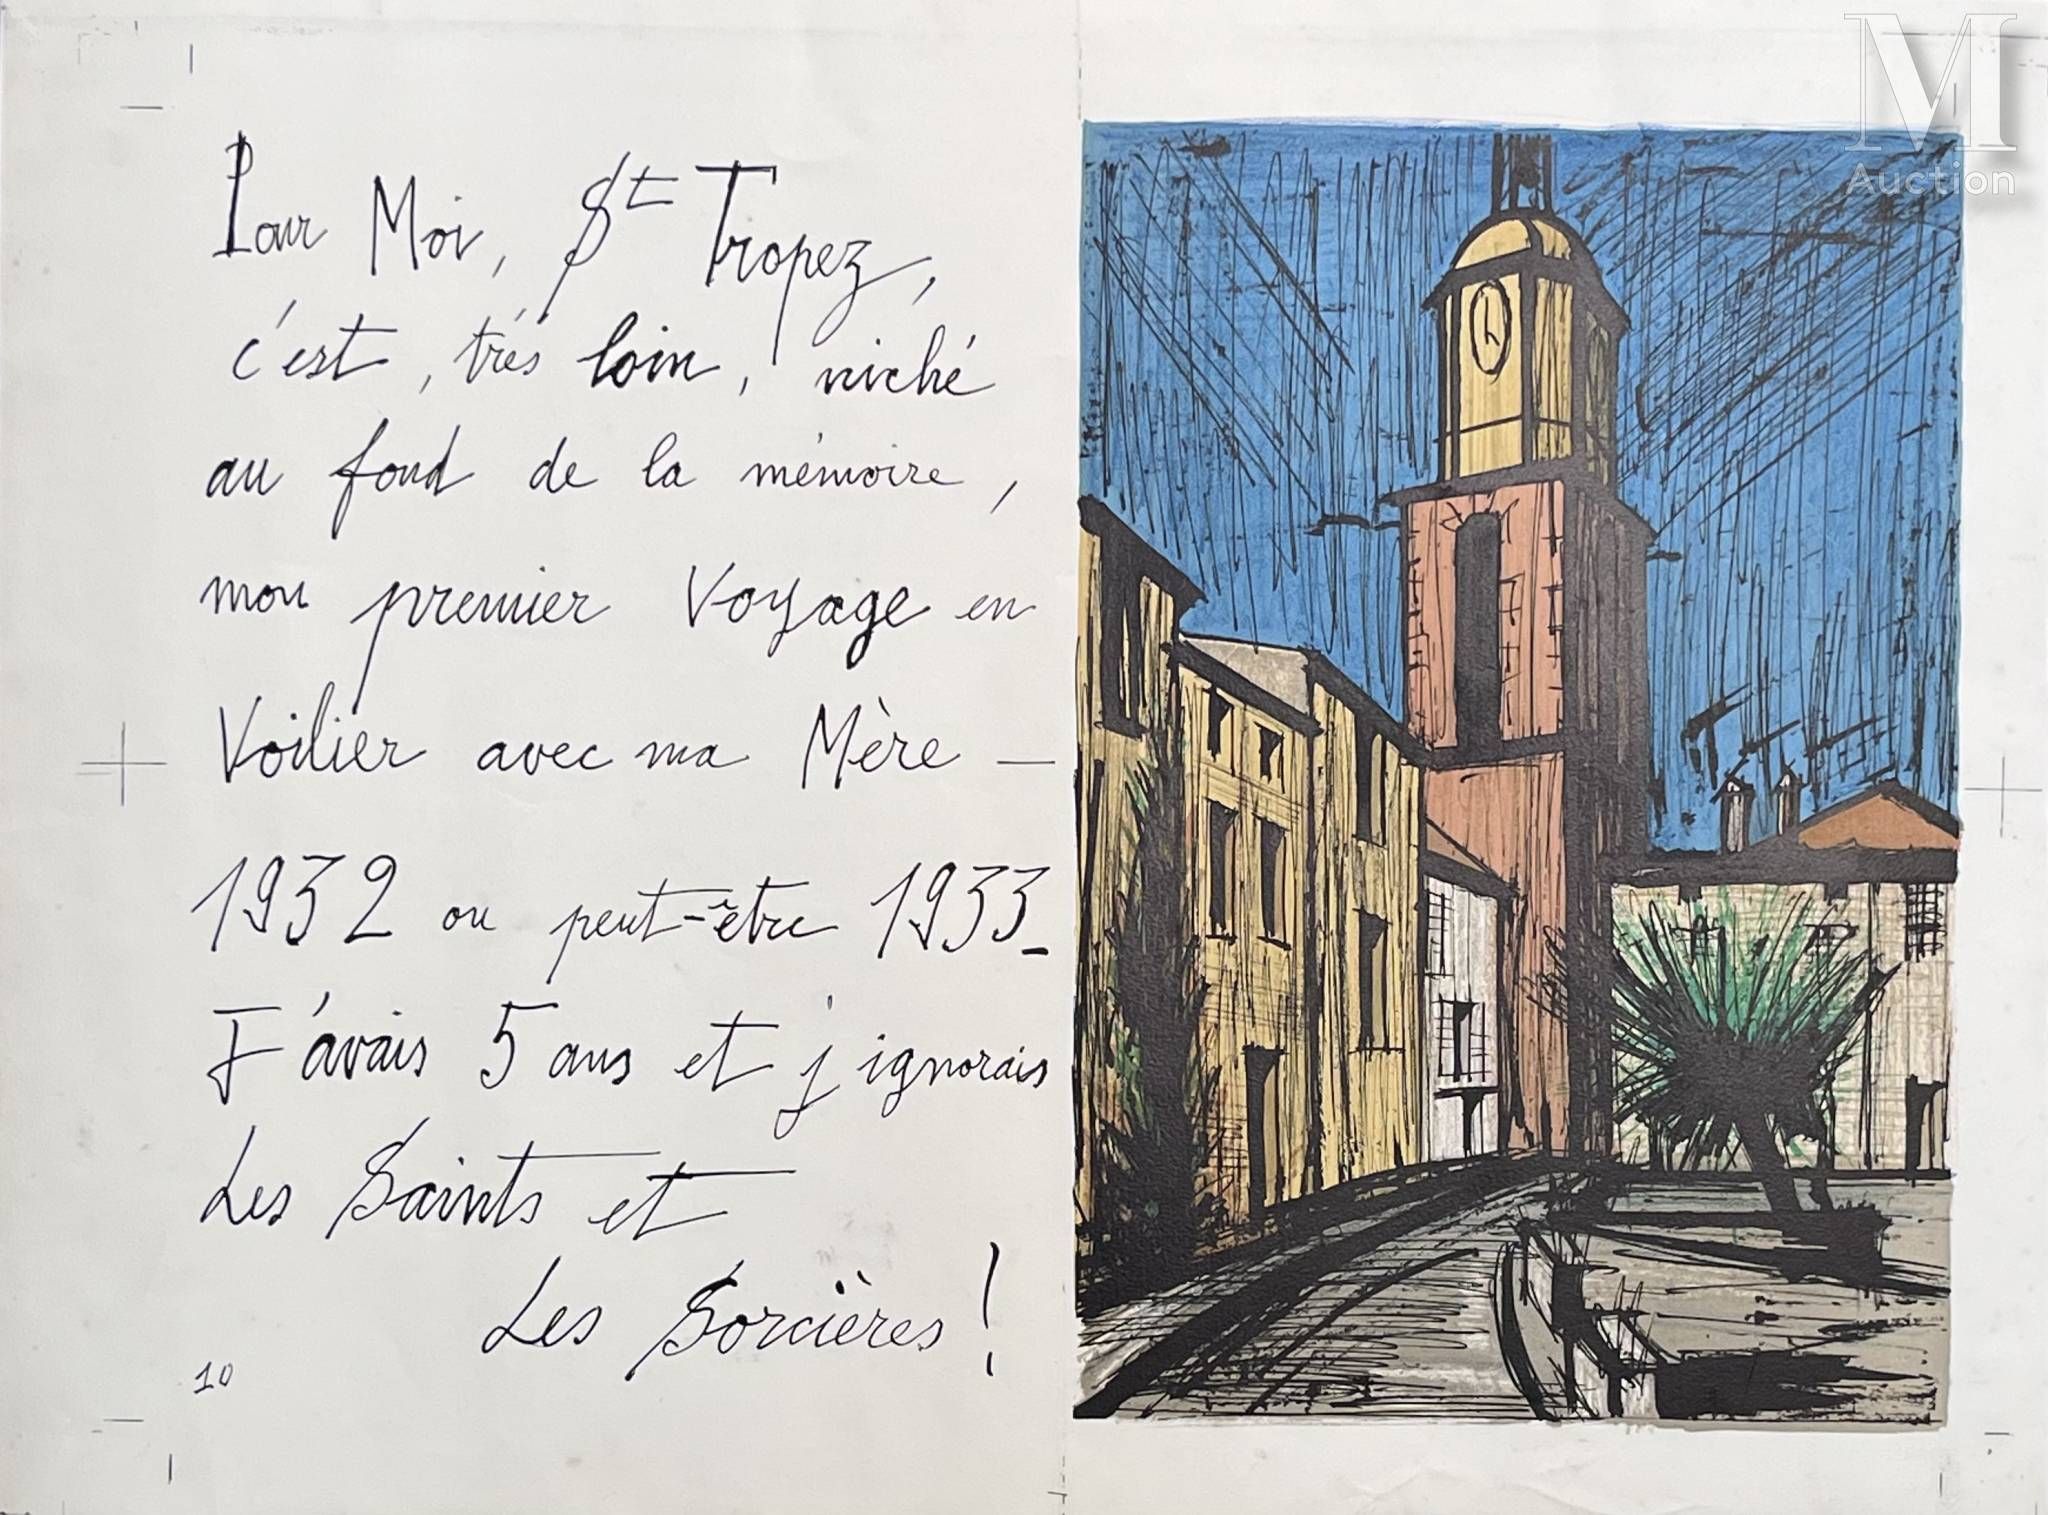 Pour Moi, St Tropez,
c'est, très loin, niché
au fond de la mémoire,
mon premier Voyage en
Voilier avec ma Mère —
1932 ou peut-être 1933_
J'avais 5 ans et j'ignorais
Les Saints et
Les Sorcières !
10
M
Auction